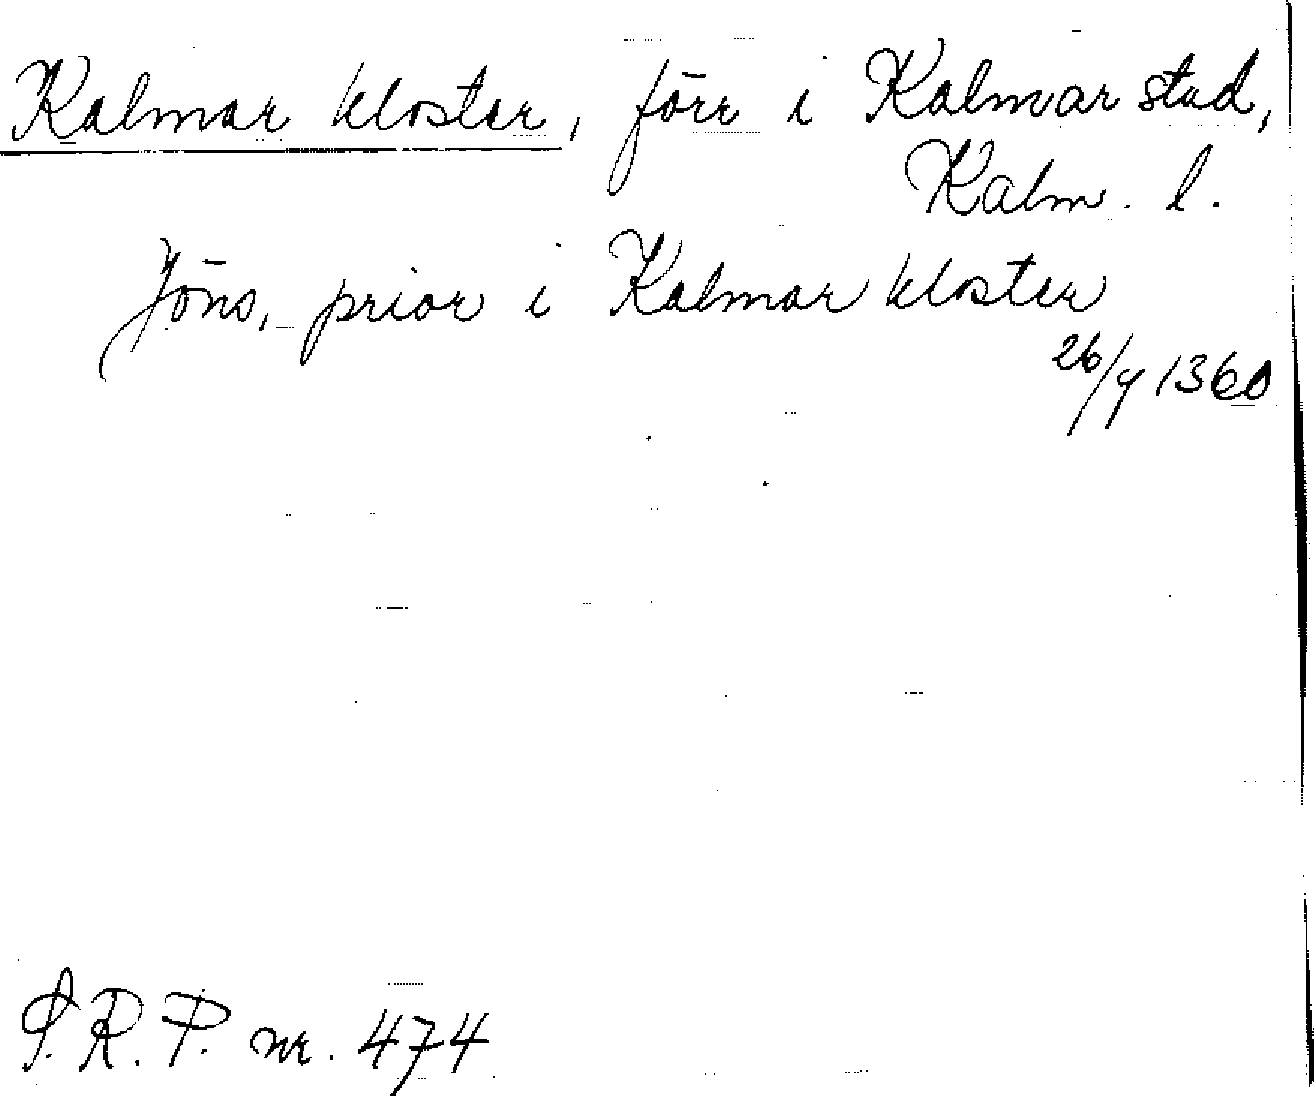 Kalmar kloster, förr i Kalmar stad,
Kalm. l.
Jöns, prior i Kalmar kloster
26/4 1360
S.R.P. nr. 474